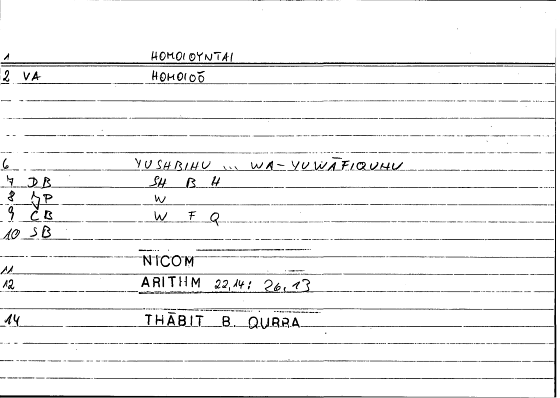 1 HOMOIOYNTAI
2 VA HOMOIOŌ
6 YUSHBIHU ... WA-YUWĀFIQUHU
7 DB SH B H
8 NP W
9 CB W F Q
10 SB
11 NICOM
12 ARITHM 22,14: 26,13
14 THĀBIT B. QURRA